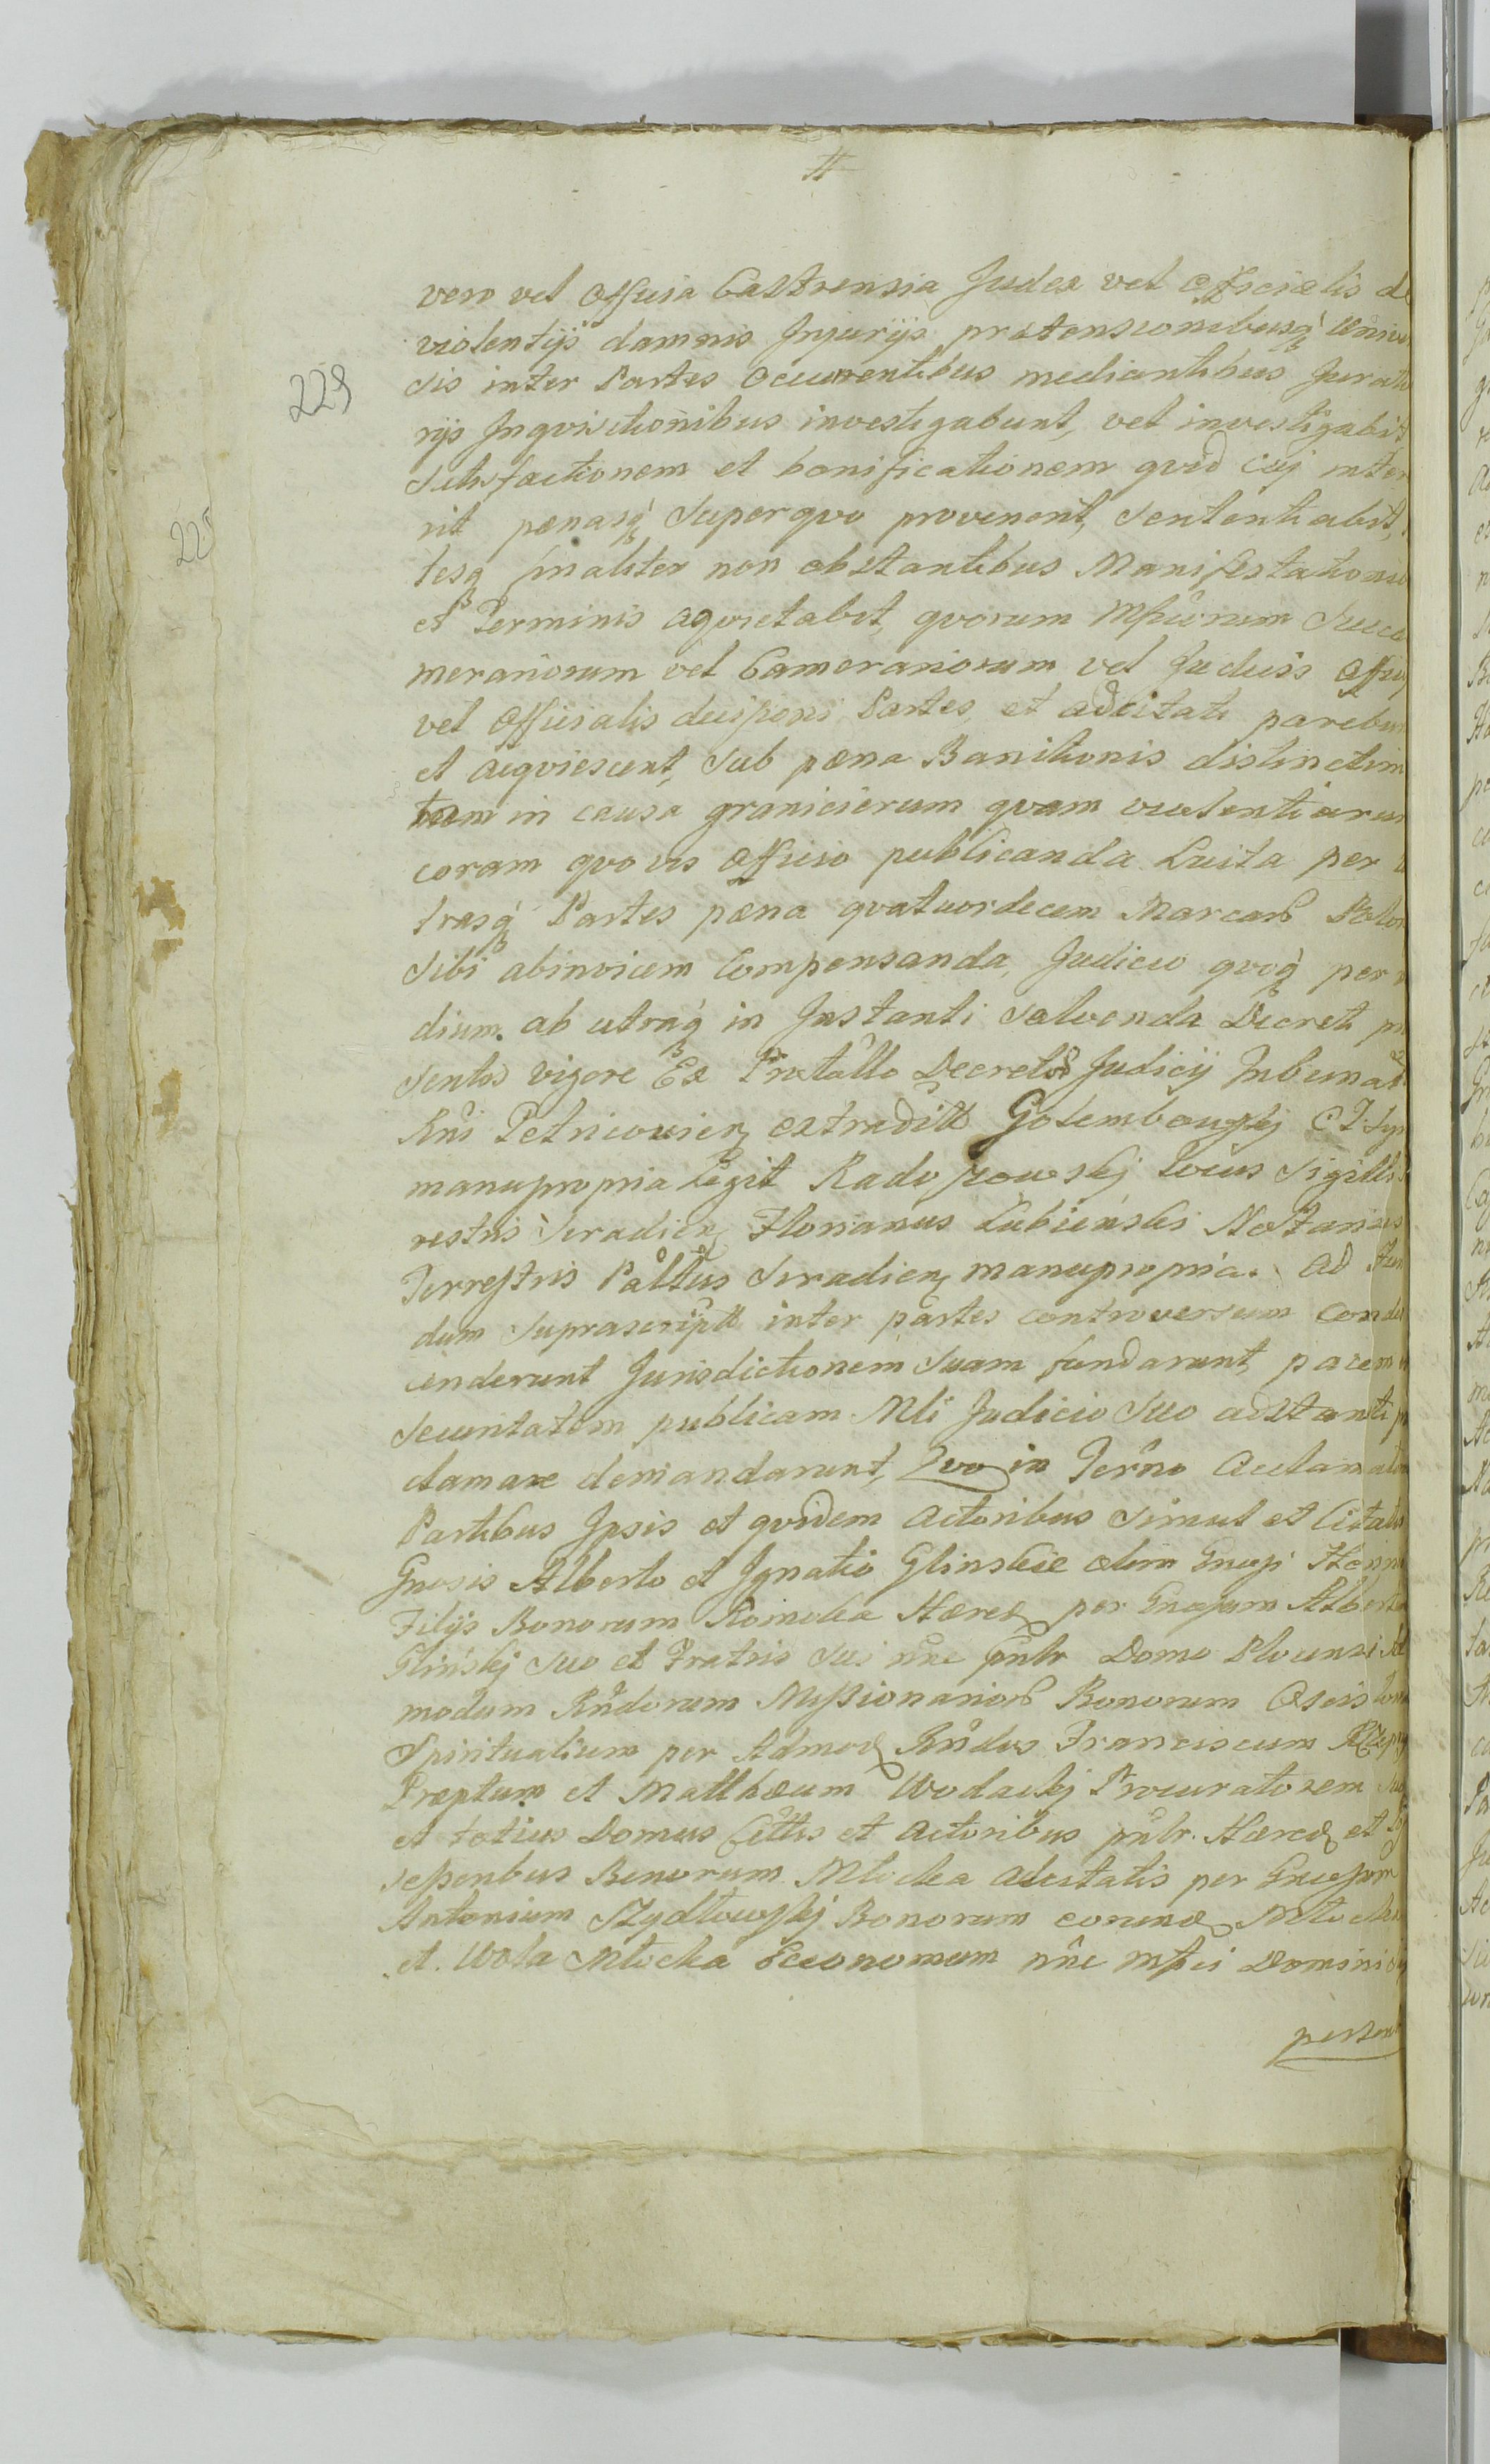 #
vero vel Officia Castrensia Judex vel Officialis de
violentijs damnis Injurijs prætensionibusq Univer
sis inter Partes Occurrentibus mediantibus Jurato
rijs Inqvisitionibus investigabunt, vel investigabit
Satisfactionem et bonificationem qvid cuj inter
rit pænasq Superqvo provenerit, Sententiabit,
tesq finaliter non obstantibus Manifestationib
et Terminis aqvietabit, qvorum Mficorum Succa
merariorum vel Camerariorum vel Judicis Officij
vel Officialis decisioni Partes, et adcitati parebun
et acqviescent, Sub pæna Banitionis distinctim
tam in causa granicierum qvam violentiarum
coram qvovis Officio publicanda Luita per
trasq Partes pæna qvatuordecem Marcar Polon
Sibi abinvicem Compensanda, Judicio qvoq per
dium. ab utraq in Instanti Solvenda Decreti præ
sentis vigore Ex Protollo Decretor Judicij Tribunal
Rni Petricovien extradit Golembowskj C T Syr
manupropria Legit Radoszowskj Locus Sigilli
restris Siradien Florianus Łubieński Notarius
Terrestris Palttus Siradien manupropria. ad
dum Suprascript inter partes controversum Conde
cenderunt Jurisdictionem Suam fundarunt, pacem
Securitatem publicam Mli Judicio Suo adstanti
clamare demandarunt, Qvo in Termo acclamato
Partibus Ipsis et qvidem Actoribus Simul et Citatis
Gnosis Alberto et Ignatio Glinskie olim Gnosi
Filijs Bonorum Hæred per Gnosum Alberto
Glinskj Suo et Fratris Sui nne pntr Domo Plocensi
modum Rndorum Missionarior Bonorum
Spiritualium per Admod Rndos Franciscum
Præptum et Matthæum Wodackj Procuratorem
et totius Domus Cittis et Actoribus pntr. Hæred et
sessoribus Bonorum Mlocka Adcitatis per Gnosum
Antonium Szydłowskj Bonorum eorund Mlocka
et. Wola Mlocka Œconomum nne Mfici Dominici
person
229
225